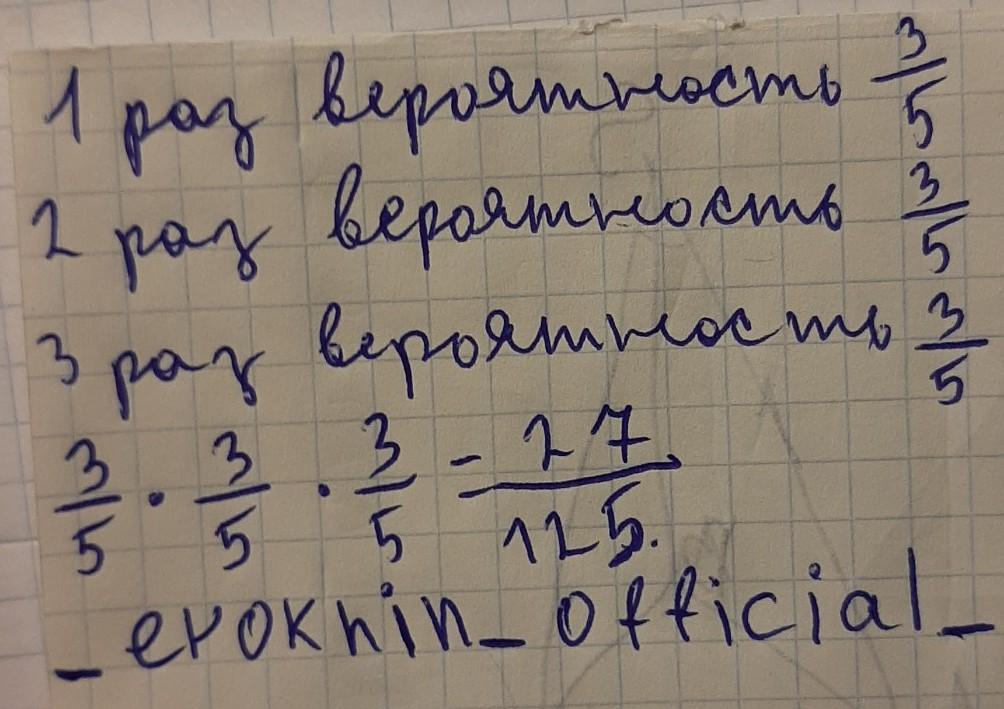 1 раз вероятность 3/5
2 раз вероятность 3/5
3 раз вероятность 3/5
3/5 · 3/5 · 3/5 = 27/125.
_erokhin_official_